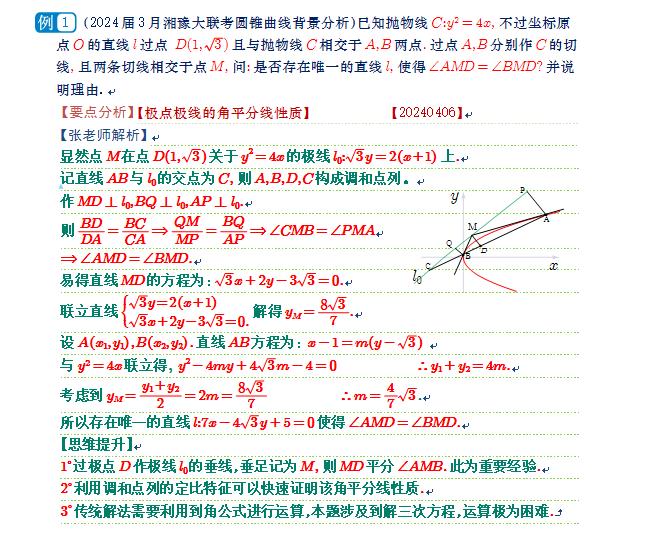 例 1 (2024届3月湘豫大联考圆锥曲线背景分析)已知抛物线C:y²=4x,不过坐标原
点O的直线l过点 D(1,√3)且与抛物线C相交于A,B两点.过点A,B分别作C的切
线,且两条切线相交于点M,问:是否存在唯一的直线l,使得∠AMD=∠BMD?并说
明理由.
【要点分析】【极点极线的角平分线性质】 【20240406】
【张老师解析】
显然点M在点D(1,√3)关于y²=4x的极线l₀:√3y=2(x+1)上.
记直线AB与l₀的交点为C,则A,B,D,C构成调和点列。
作MD⊥l₀,BQ⊥l₀,AP⊥l₀.
则 BD/DA=BC/CA⇒QM/MP=BQ/AP⇒∠CMB=∠PMA
⇒∠AMD=∠BMD.
易得直线MD的方程为:√3x+2y-3√3=0.
联立直线{√3y=2(x+1) √3x+2y-3√3=0. 解得y_M=8√3/7.
设A(x₁,y₁),B(x₂,y₂).直线AB方程为:x-1=m(y-√3)
与y²=4x联立得,y²-4my+4√3m-4=0 ∴y₁+y₂=4m.
考虑到y_M=(y₁+y₂)/2=2m=8√3/7 ∴m=4/7√3.
所以存在唯一的直线l:7x-4√3y+5=0使得∠AMD=∠BMD.
【思维提升】
1°过极点D作极线l₀的垂线,垂足记为M,则MD平分∠AMB.此为重要经验.
2°利用调和点列的定比特征可以快速证明该角平分线性质.
3°传统解法需要利用到角公式进行运算,本题涉及到解三次方程,运算极为困难.
y
P
A
M
Q
D
B
C
l₀
x